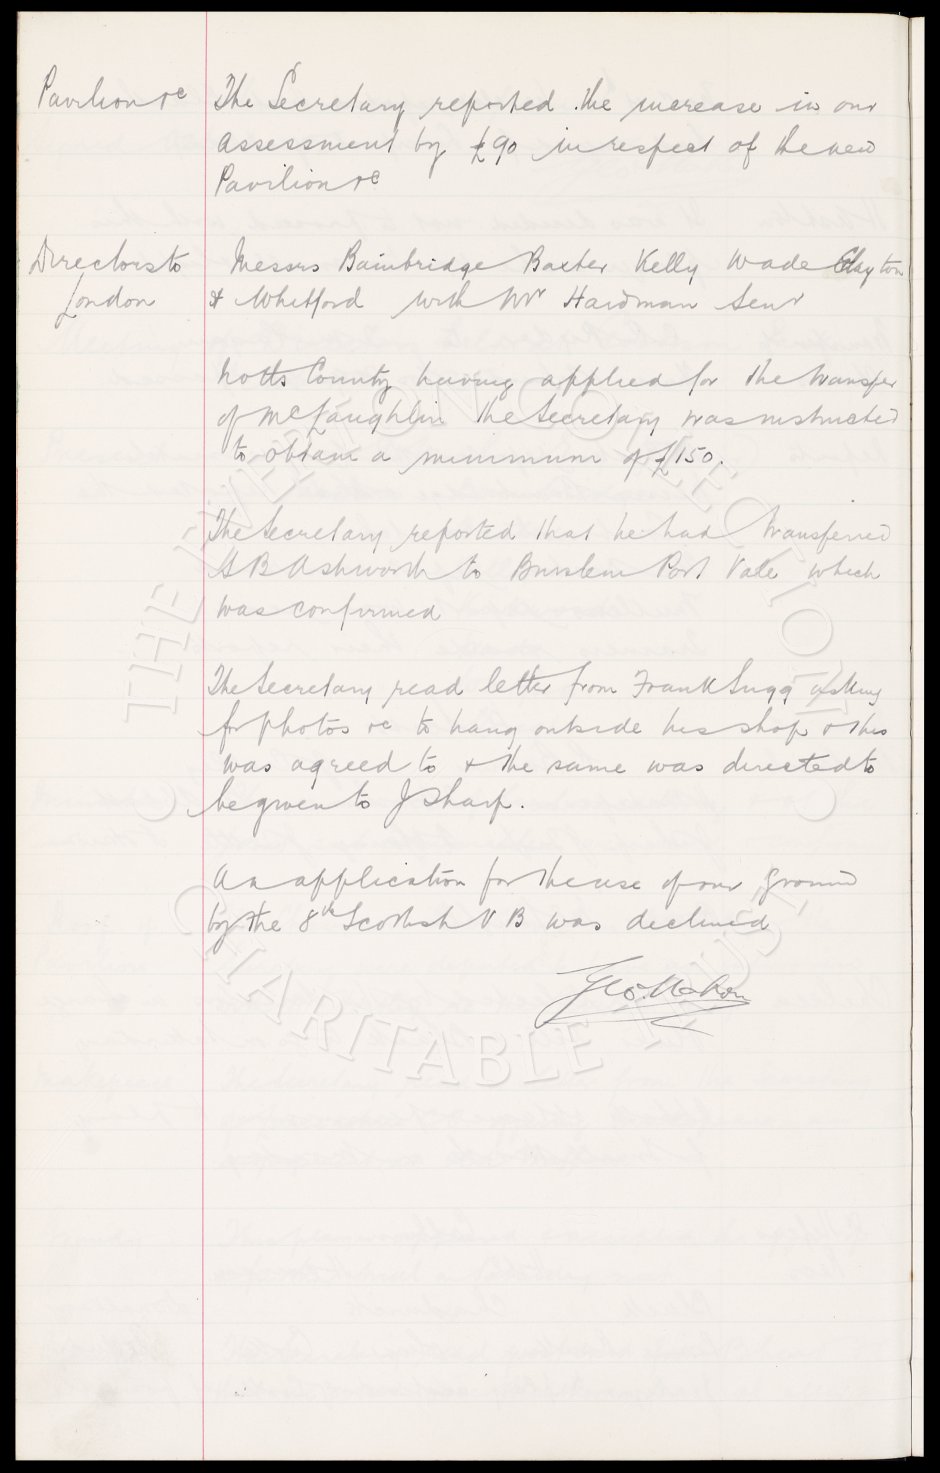 Pavilion &c
The Secretary reported the increase in our
assessment by £90 in respect of the new
Pavilion &c
Directors to
London
Messrs Bainbridge Baxter Kelly Wade Clayton
& Whitford with Mr Hardman Senr
Notts County having applied for the transfer
of McLaughlin the Secretary was instructed
to obtain a minimum of £150.
The Secretary reported that he had transferred
S B Ashworth to Burslem Port Vale which
was confirmed
The Secretary read letter from Frank Sugg asking
for photos &c to hang outside his shop & this
was agreed to & the same was directed to
be given to J Sharp.
An application for the use of our ground
by the 8th Scottish V B was declined
Geo. Mahon
THE EVERTON COLLECTION
CHARITABLE TRUST